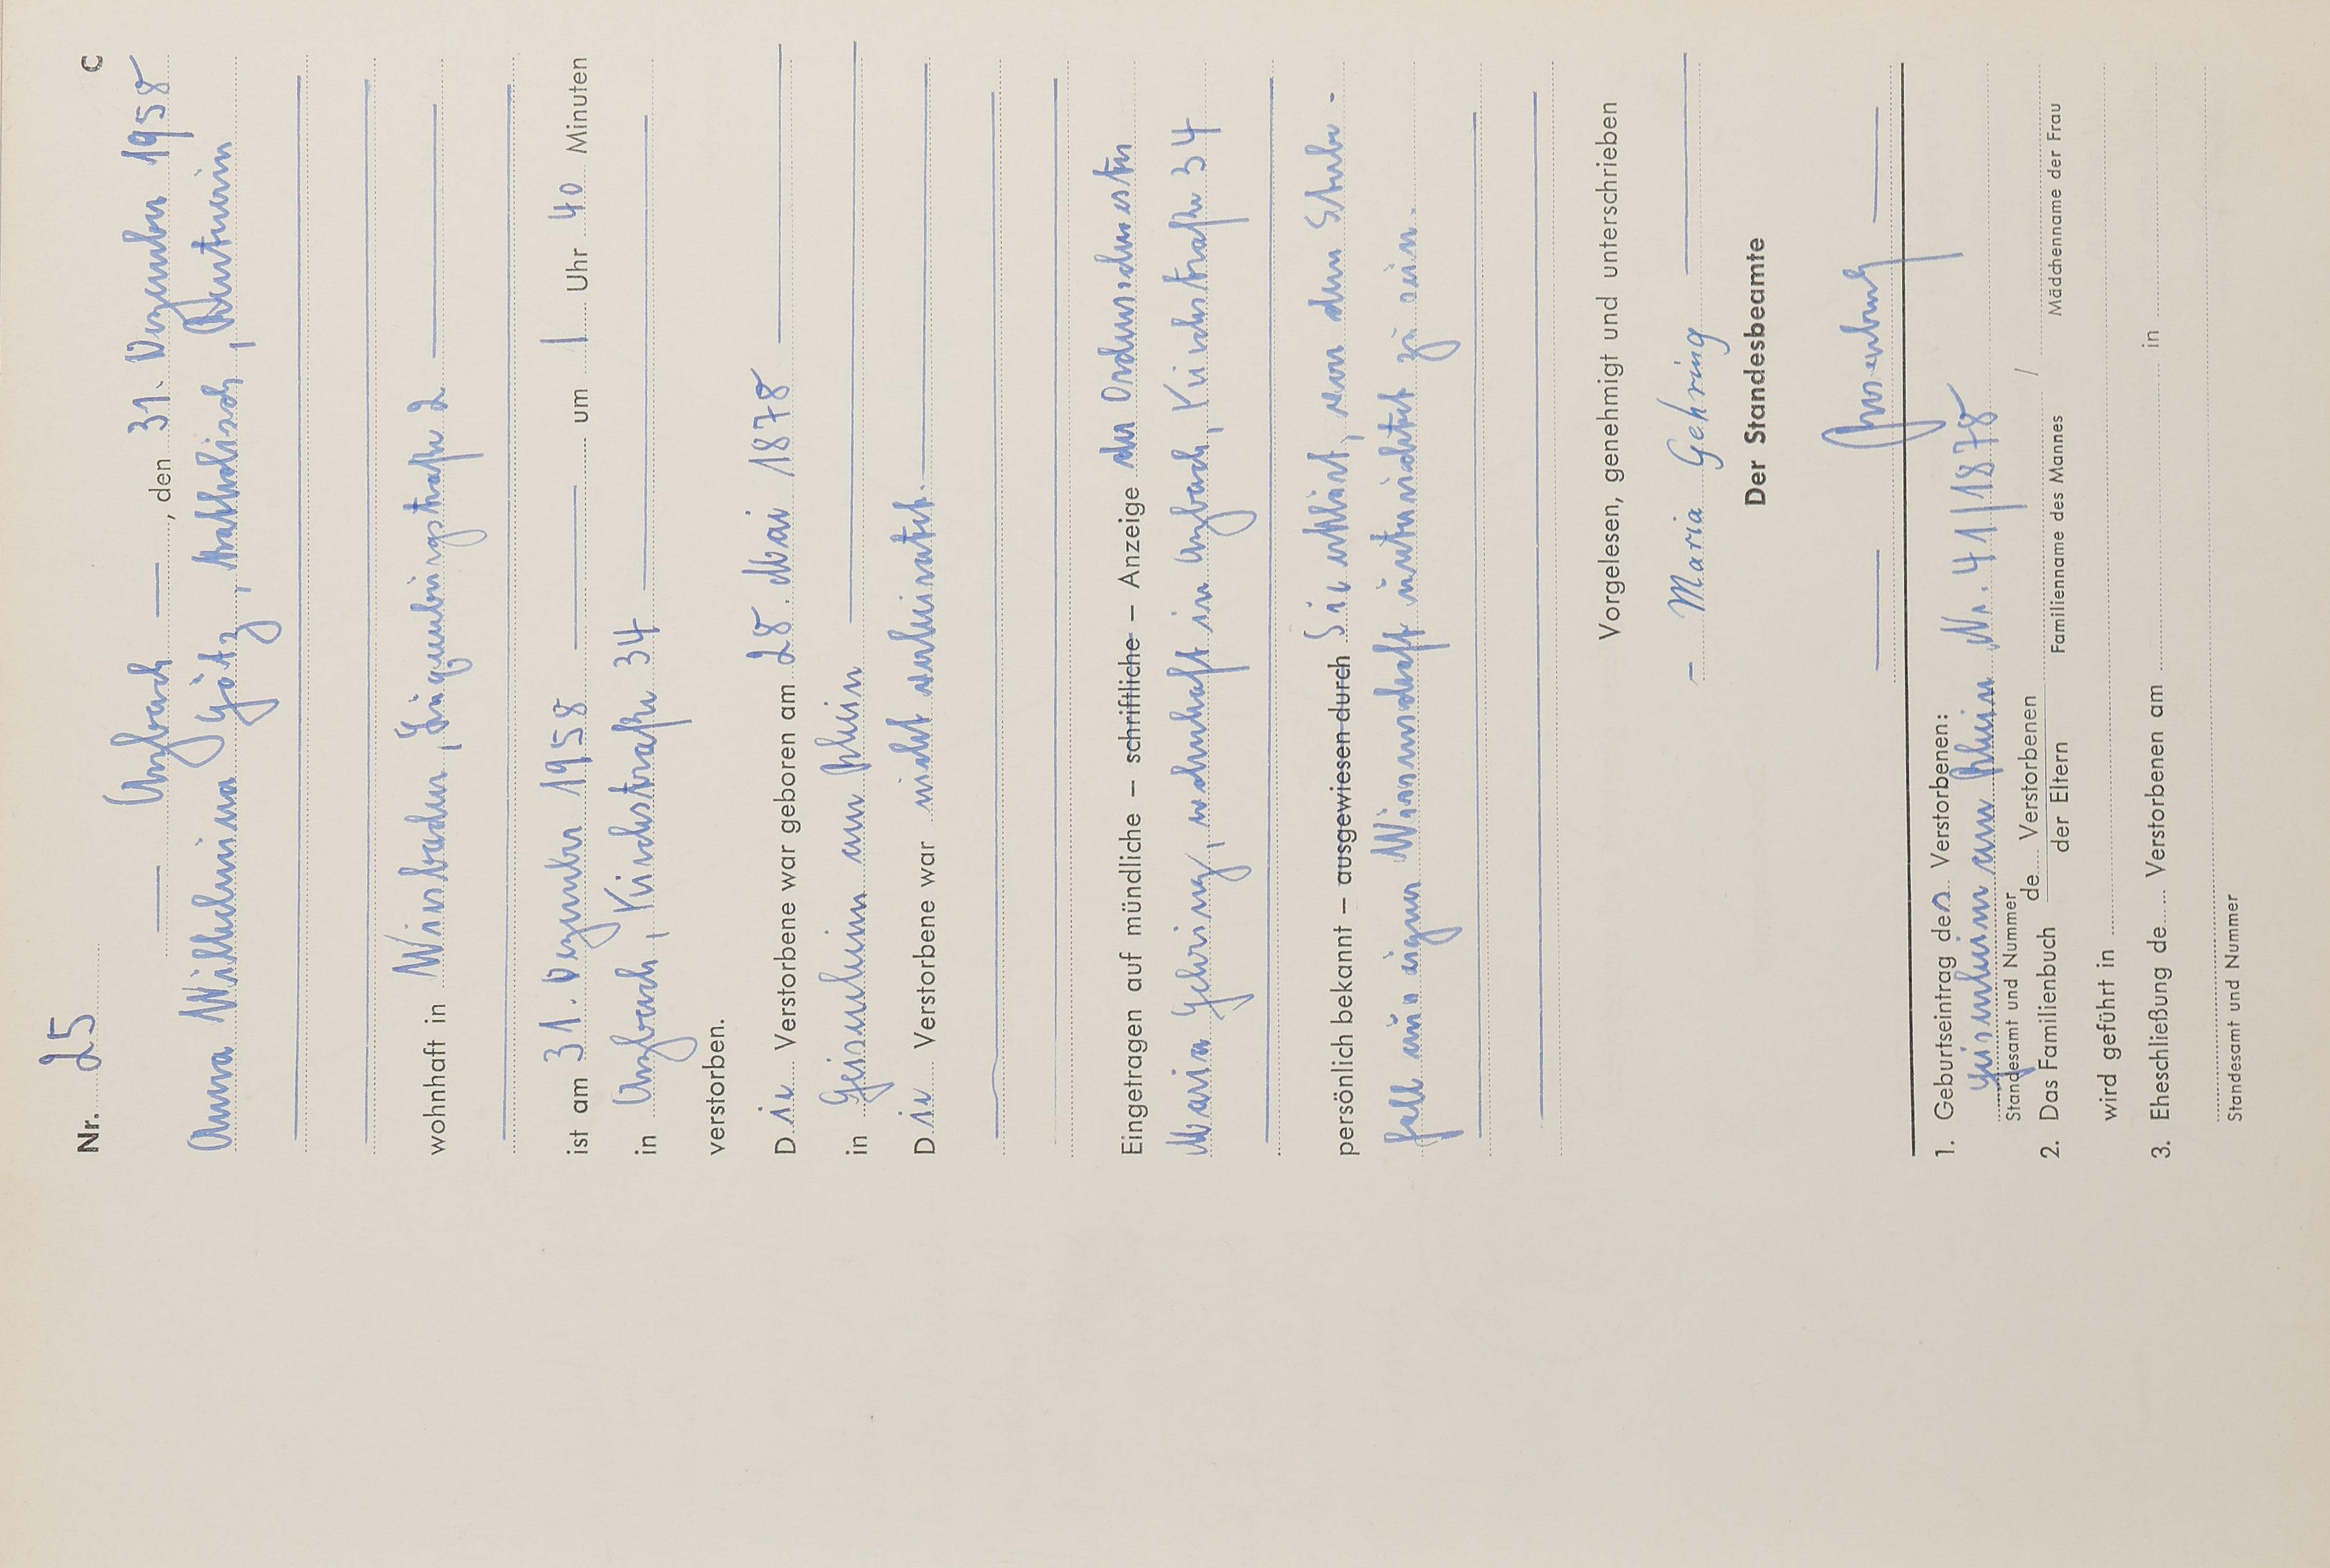 Nr. 25 C
Anzbach, den 31. Dezember 1958
Anna Wilhelmina Götz, katholisch, Rentnerin
wohnhaft in Wiesbaden,
ist am 31. Dezember 1958 um 1 Uhr 40 Minuten
in Anzbach, Kirchstraße 34
verstorben.
Die Verstorbene war geboren am 28. Mai 1878
in Geisenheim am Rhein
Die Verstorbene war nicht verheiratet.
Eingetragen auf mündliche – schriftliche – Anzeige der Ordensschwester
Maria Gehring, wohnhaft in Anzbach, Kirchstraße 34
persönlich bekannt – ausgewiesen durch Sie erklärt, von dem Sterbe-
fall aus eigner Wissenschaft unterrichtet zu sein.
Vorgelesen, genehmigt und unterschrieben
– Maria Gehring
Der Standesbeamte
1. Geburtseintrag des Verstorbenen:
Geisenheim am Rhein Nr. 41/1878
Standesamt und Nummer
2. Das Familienbuch de Verstorbenen / der Eltern /
Familienname des Mannes Mädchenname der Frau
wird geführt in
3. Eheschließung de Verstorbenen am in
Standesamt und Nummer